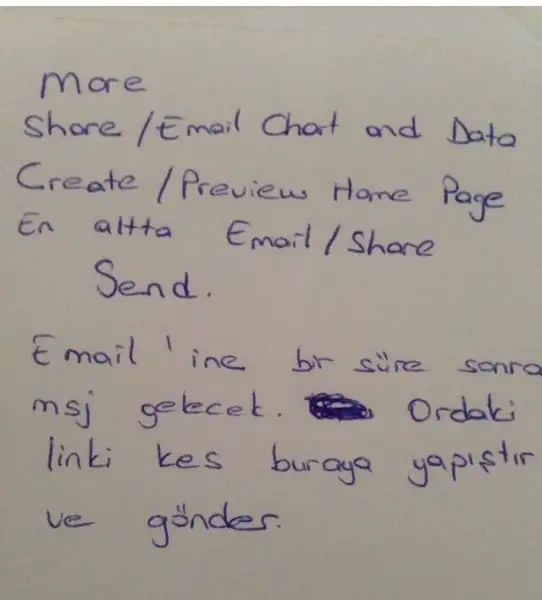 More
Share / Email Chart and Data
Create / Preview Home Page
En altta Email / Share
Send.
Email 'ine bir süre sonra
msj gelecek. Ordaki
linki kes buraya yapıştır
ve gönder.